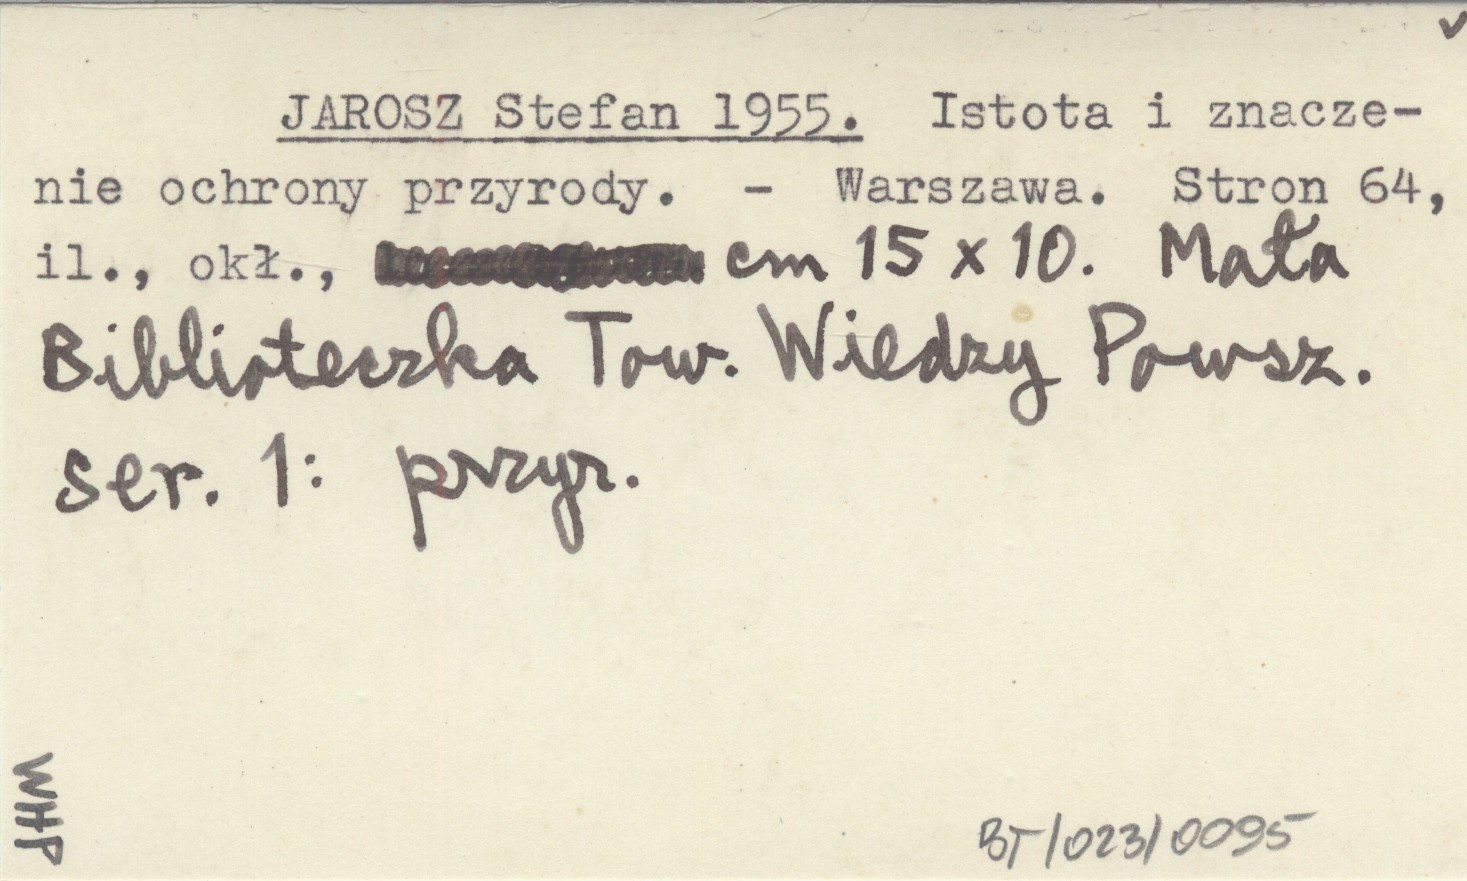 JAROSZ Stefan 1955. Istota i znacze-
nie ochrony przyrody. - Warszawa. Stron 64,
il., okł., cm 15 x 10. Mała
Biblioteczka Tow. Wiedzy Powsz.
ser. 1: przyr.
WHP
BT/023/0095